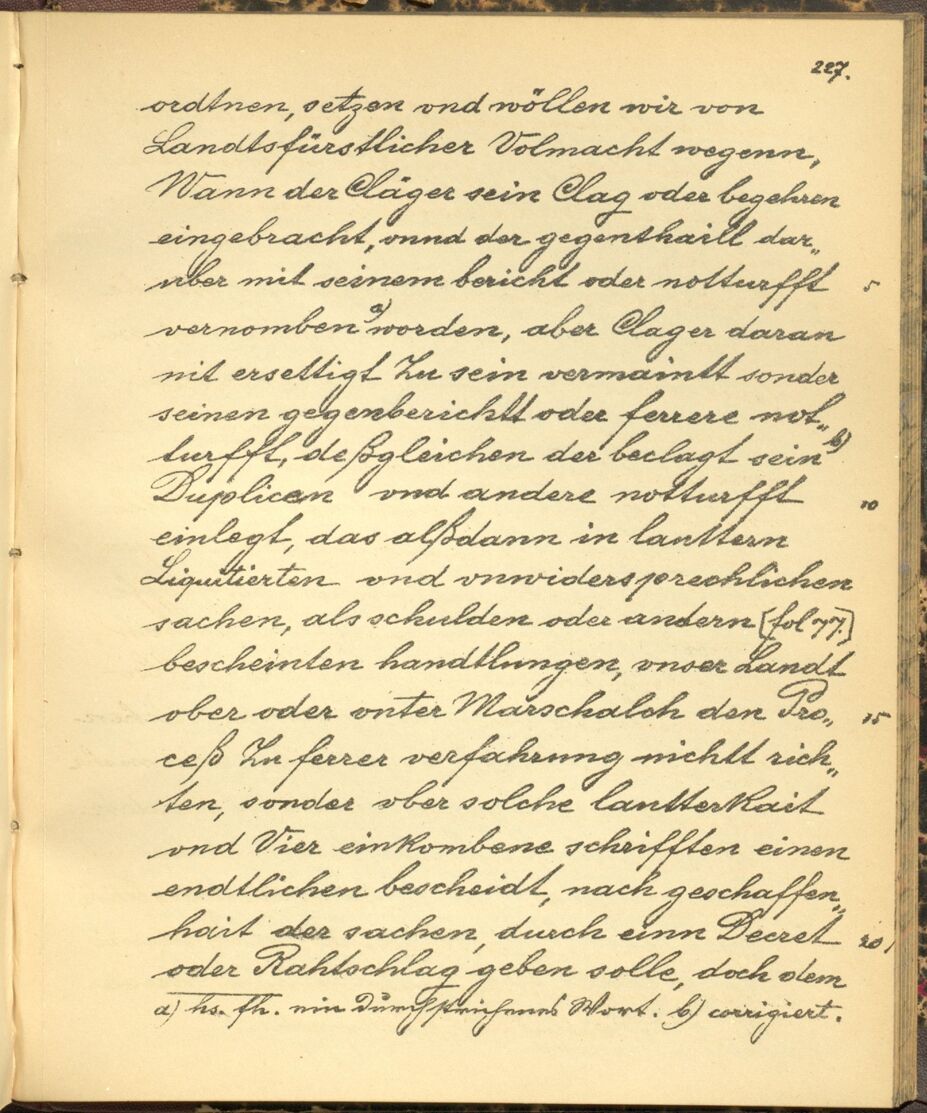 227.
ordtnen, setzen vnd wöllen wir von
Landtsfürstlicher Volmacht wegenn,
Wann der Cläger sein Clag oder begehren
eingebracht, vnnd der gegenthaill dar„
über mit seinem bericht oder notturfft 5
vernomben a) worden, aber Clager daran
nit ersettigt Zu sein vermaintt sonder
seinen gegenberichtt oder ferrere not„
turfft, deßgleichen der beclagt sein b)
Duplicen vnd andere notturfft 10
einlegt, das alßdann in lauttern
Liquitierten vnd vnwidersprechlichen
sachen, als schulden oder andern [fol 77.]
bescheinten handtlungen, vnser Landt
ober oder vnter Marschalch den Pro„ 15
ceß Zu ferrer verfahrung nichtt rich„
ten, sonder vber solche lautterkait
vnd Vier einkombene schrifften einen
endtlichen bescheidt, nach geschaffen„
hait der sachen, durch einn Decret 20
oder Rahtschlag geben solle, doch dem
a) hs. fh. ein durchstrichenes Wort. b) corrigiert.